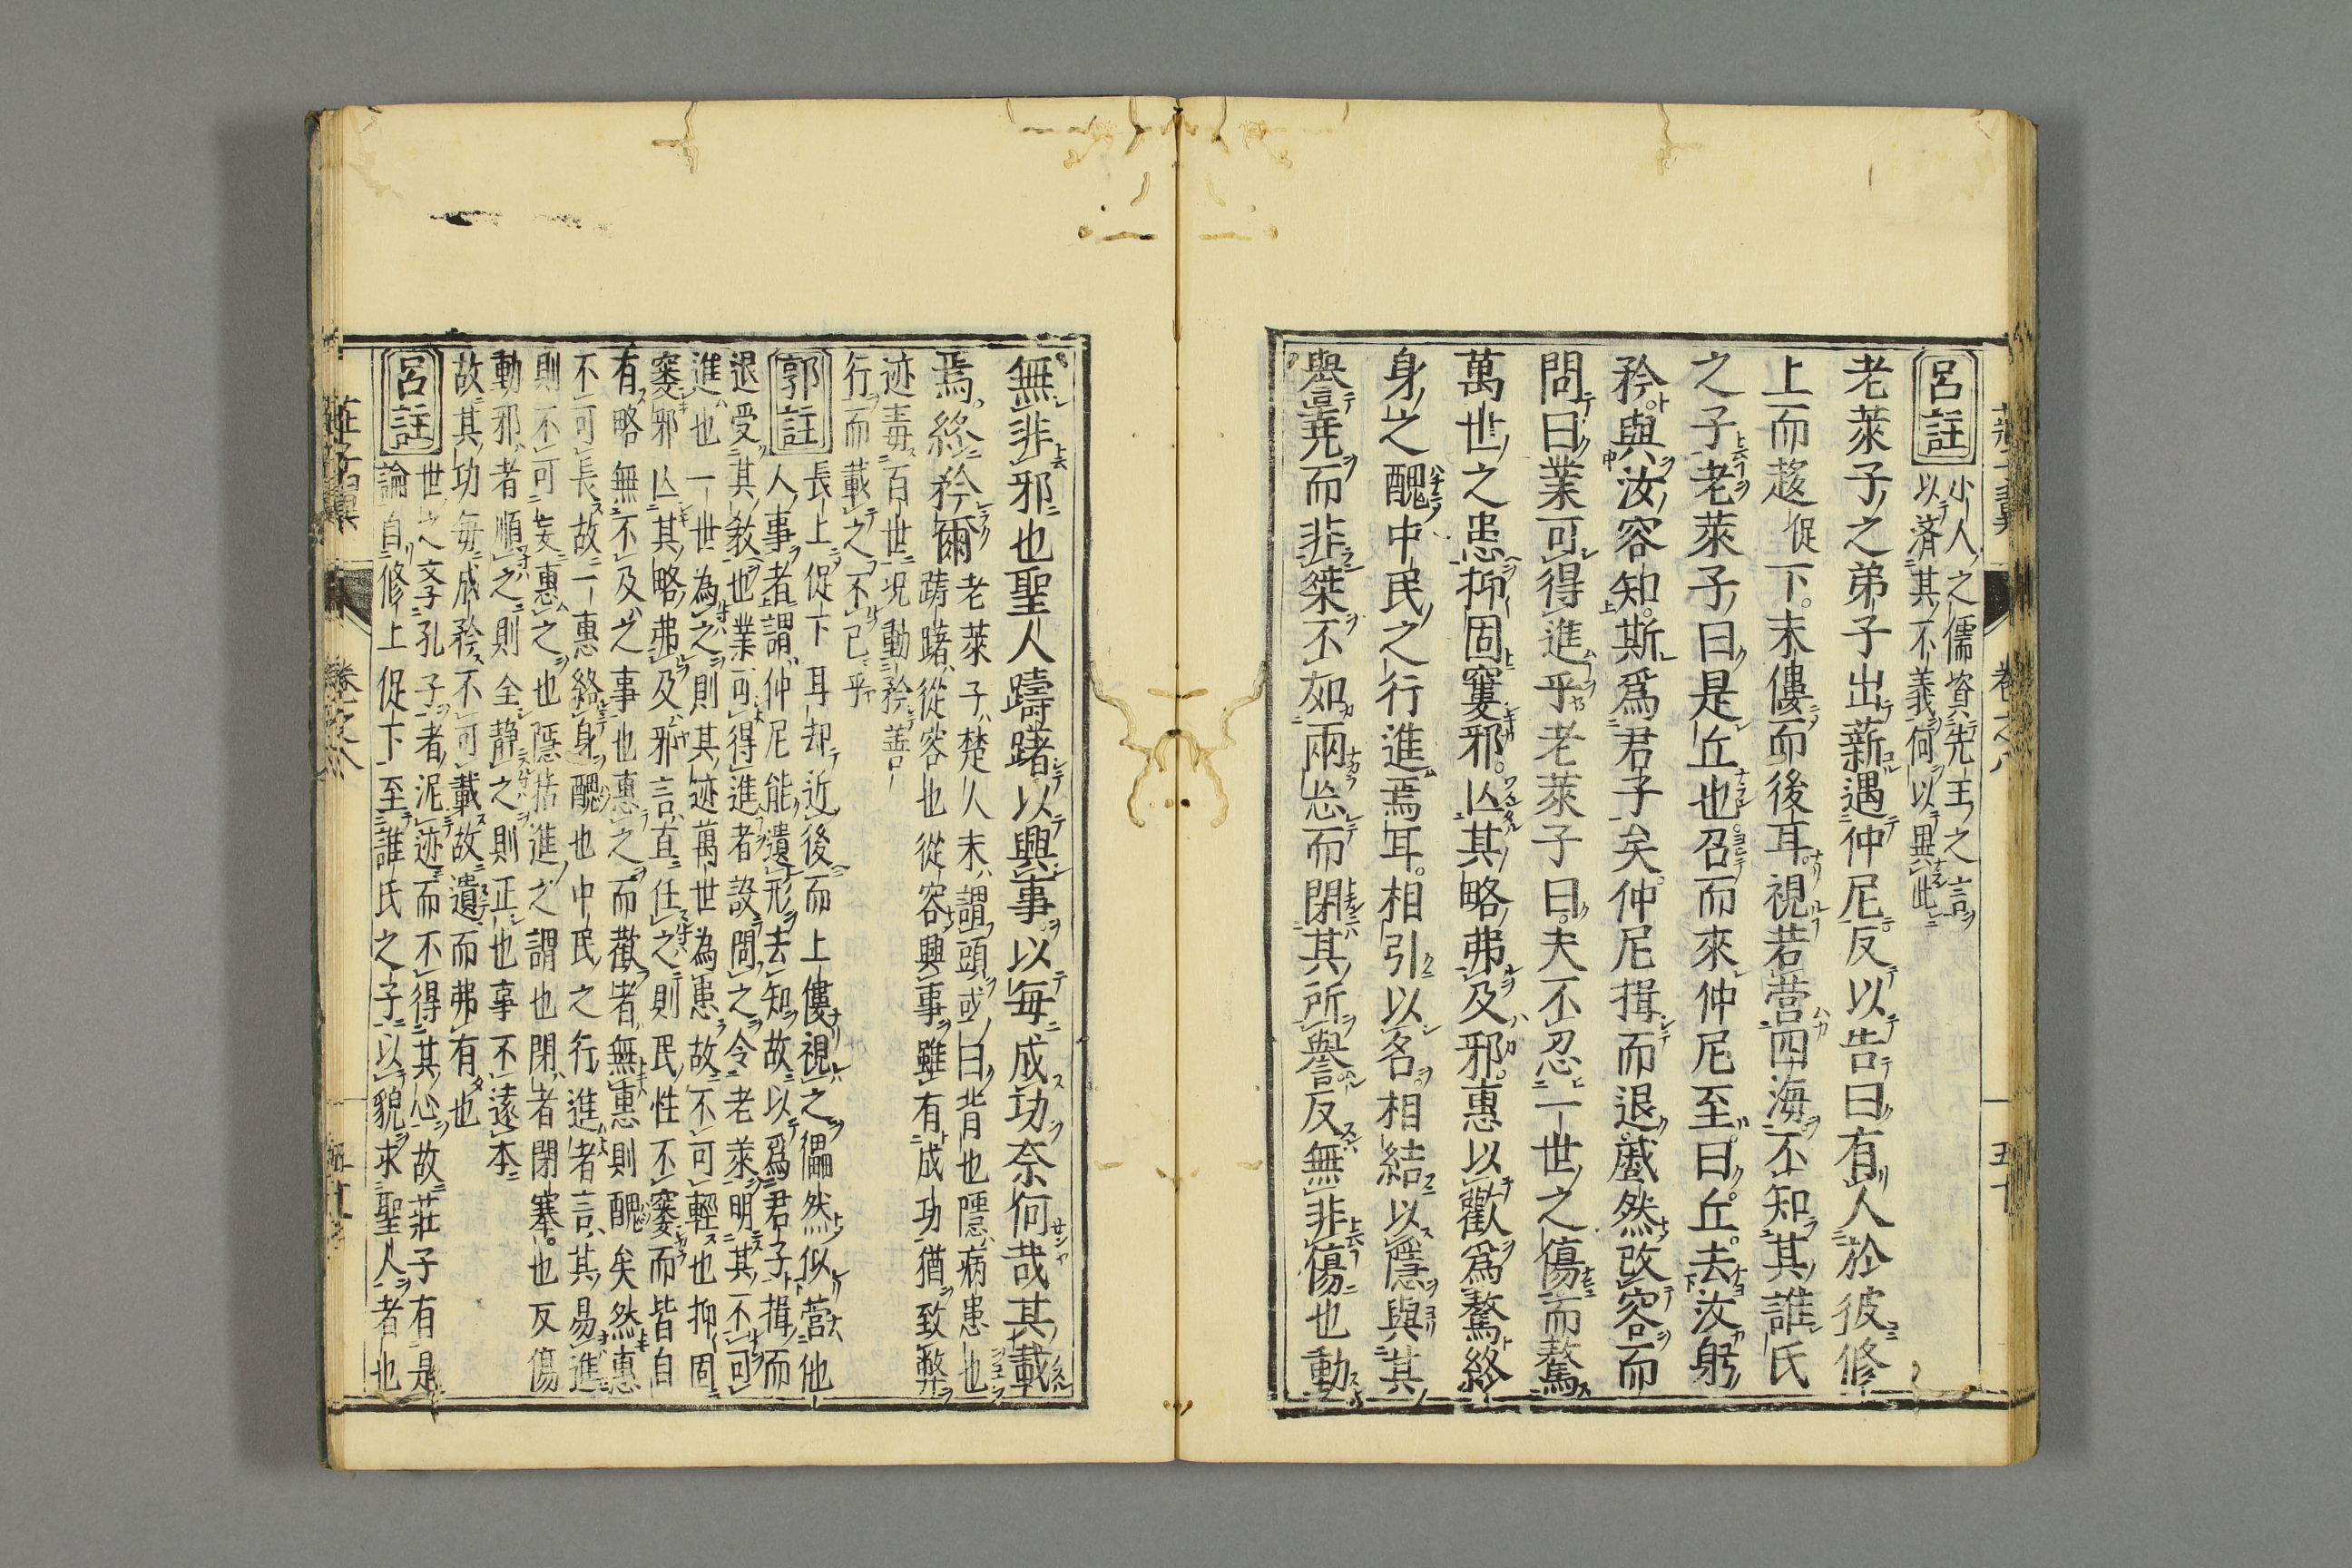 呂註
小人之儒資先王之言
以済其不義何以異此
老萊子之弟子出薪遇仲尼反以告曰有人於彼修
上而趍促下末僂而後耳視若營四海不知其誰氏
之子老萊子曰是丘也召而來仲尼至曰丘去汝躬
矜與汝容知斯爲君子矣仲尼揖而退蹙然改容而
問曰業可得進乎老萊子曰夫不忍一世之傷而驁
萬世之患抑固窶邪亾其略弗及邪惠以歡爲驁終
身之醜中民之行進焉耳相引以名相結以隱與其
譽堯而非桀不如兩忘而閉其所譽反無非傷也動
無非邪也聖人躊躇以興事以每成功奈何哉其載
焉終矜爾
老萊子楚人末謂頭或曰背也隱病患也
躊躇從容也從容興事雖有成功猶致弊
迹毒百世况動矜善
行而載之不已乎
郭註
長上促下耳却近後而上僂視之儡然似營他
人事者謂仲尼能遺形去知故以爲君子揖而
退受其敎也業可得進者設問之令老萊明其不可
進也一世為之則其迹萬世為患故不可輕也抑固
窶邪亾其略弗及邪言直任之則民性不窶而皆自
有略無不及之事也惠之而歡者無惠則醜矣然惠
不可長故一惠終身醜也中民之行進者言其易進
則不可妄惠之也隱括進之謂也閉者閉塞也反傷
動邪者順之則全静之則正也事不遠本
故其功每成矜不可載故遺而弗有也
呂註
世之孛孔子者泥迹而不得其心故莊子有是
論自修上促下至誰氏之子以貌求聖人者也